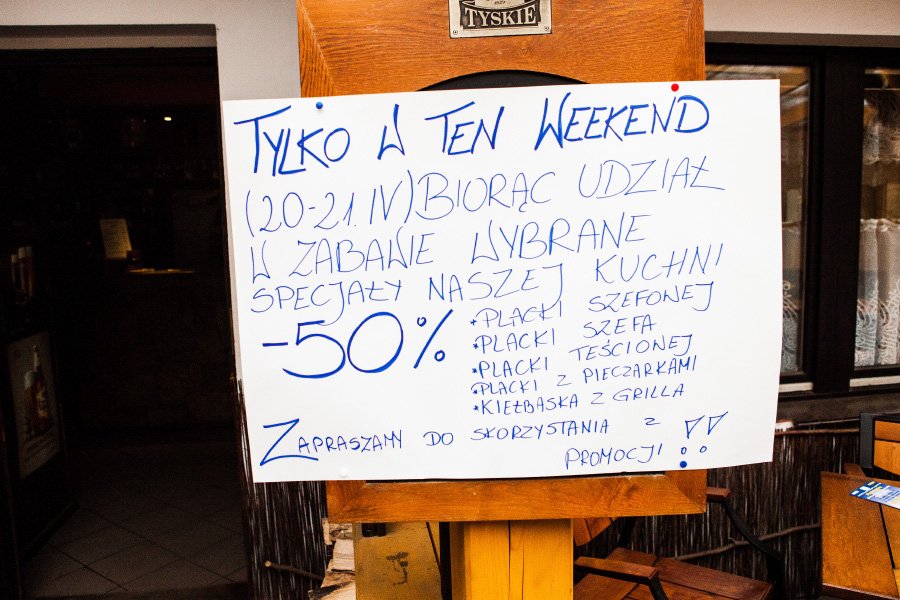 TYSKIE
TYLKO W TEN WEEKEND
(20-21.IV) BIORĄC UDZIAŁ
W ZABAWIE WYBRANE
SPECJAŁY NASZEJ KUCHNI
-50%
*PLACKI SZEFONEJ
*PLACKI SZEFA
*PLACKI TEŚCIONEJ
*PLACKI Z PIECZARKAMI
*KIEŁBASKA Z GRILLA
ZAPRASZAMY DO SKORZYSTANIA Z
PROMOCJI !!